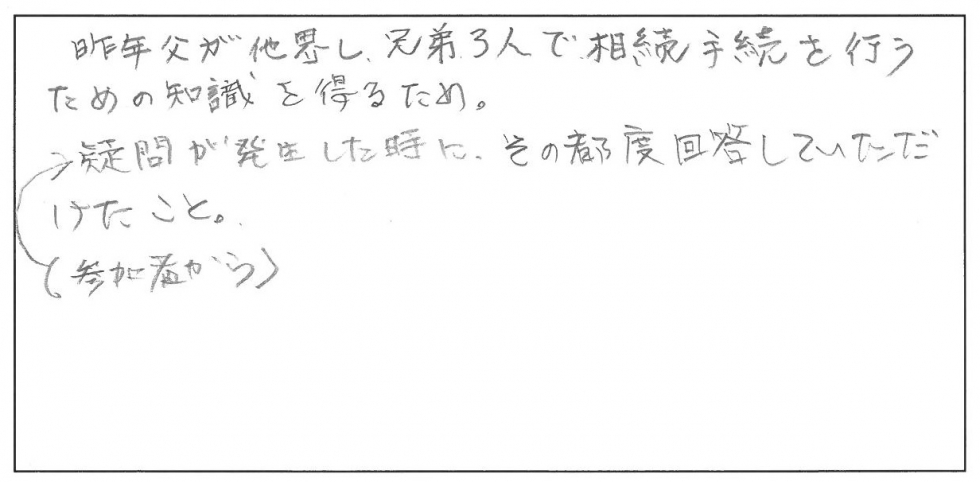 昨年父が他界し、兄弟3人で相続手続を行う
ための知識を得るため。
→疑問が発生した時に、その都度回答していただ
けたこと。
(参加者から)